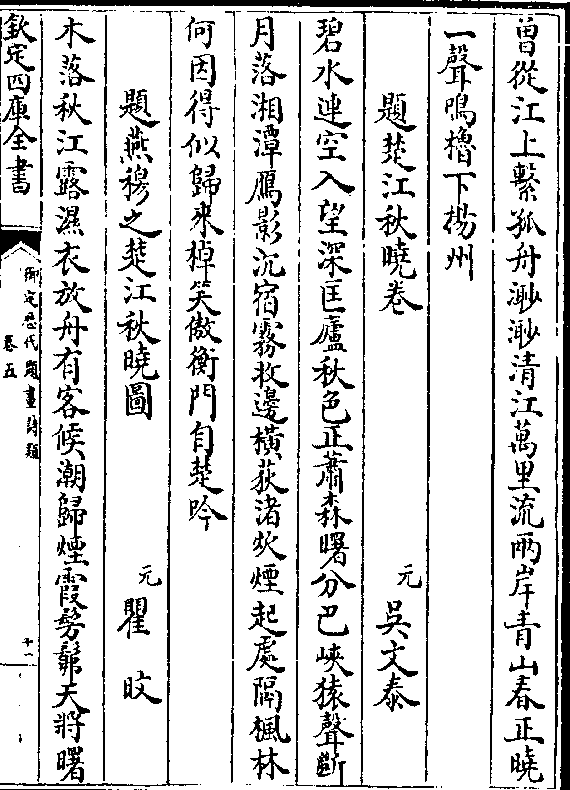 曾從江上繫孤舟渺渺清江萬里流兩岸青山春正曉
一聲鳴櫓下楊州
題楚江秋曉卷　元　吳文泰
碧水連空入望深匡廬秋色正蕭森曙分巴峽猿聲斷
月落湘潭鴈影沉宿霧收邊橫荻渚炊煙起處隔楓林
何因得似歸來棹笑傲衡門自楚吟
題燕穆之楚江秋曉圖　元　瞿旼
木落秋江露濕衣放舟有客候潮歸煙霞髣髴天將曙
欽定四庫全書
御定歷代題畫詩類
卷五
十一